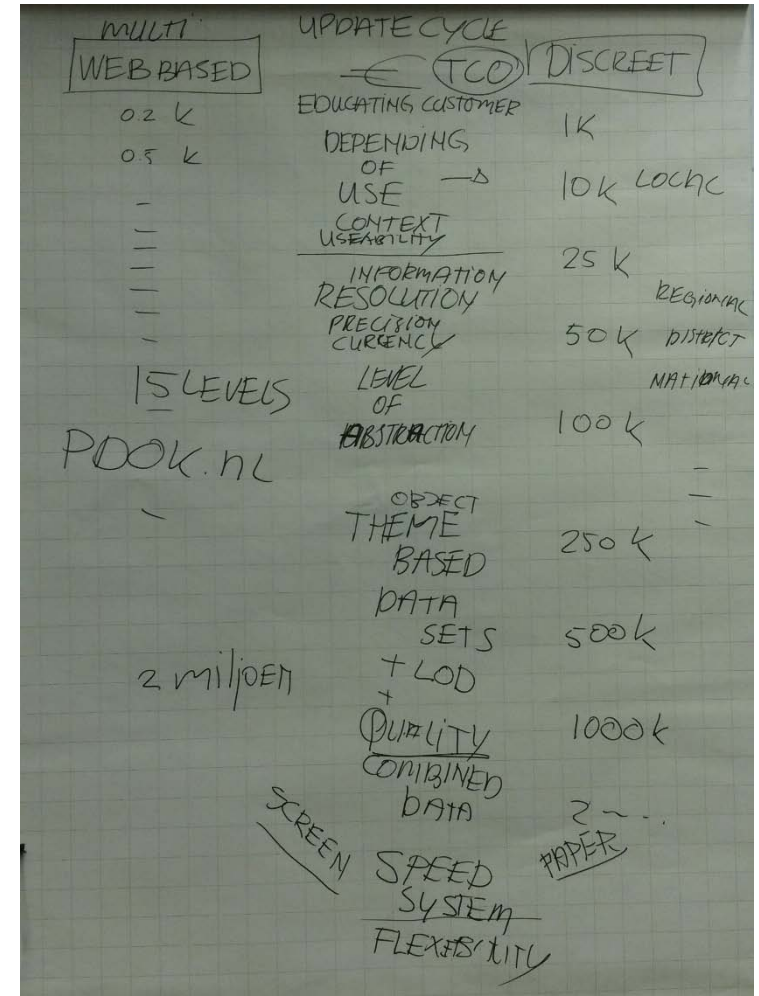 MULTI
WEB BASED
0.2 K
0.5 K
–
–
–
–
–
–
15 LEVELS
PDOK.nl
–
2 miljoen
SCREEN
UPDATE CYCLE
€ TCO
EDUCATING CUSTOMER
DEPENDING
OF
USE →
CONTEXT
USEABILITY
INFORMATION
RESOLUTION
PRECISION
CURRENCY
LEVEL
OF
ABSTRACTION
OBJECT
THEME
BASED
DATA
SETS
+ LOD
+
QUALITY
COMBINED
DATA
SPEED
SYSTEM
FLEXIBILITY
DISCREET
1K
10K LOCAL
25 K
REGIONAL
50K DISTRICT
NATIONAL
100K
–
–
–
250K
500K
1000K
2 – ..
PAPER